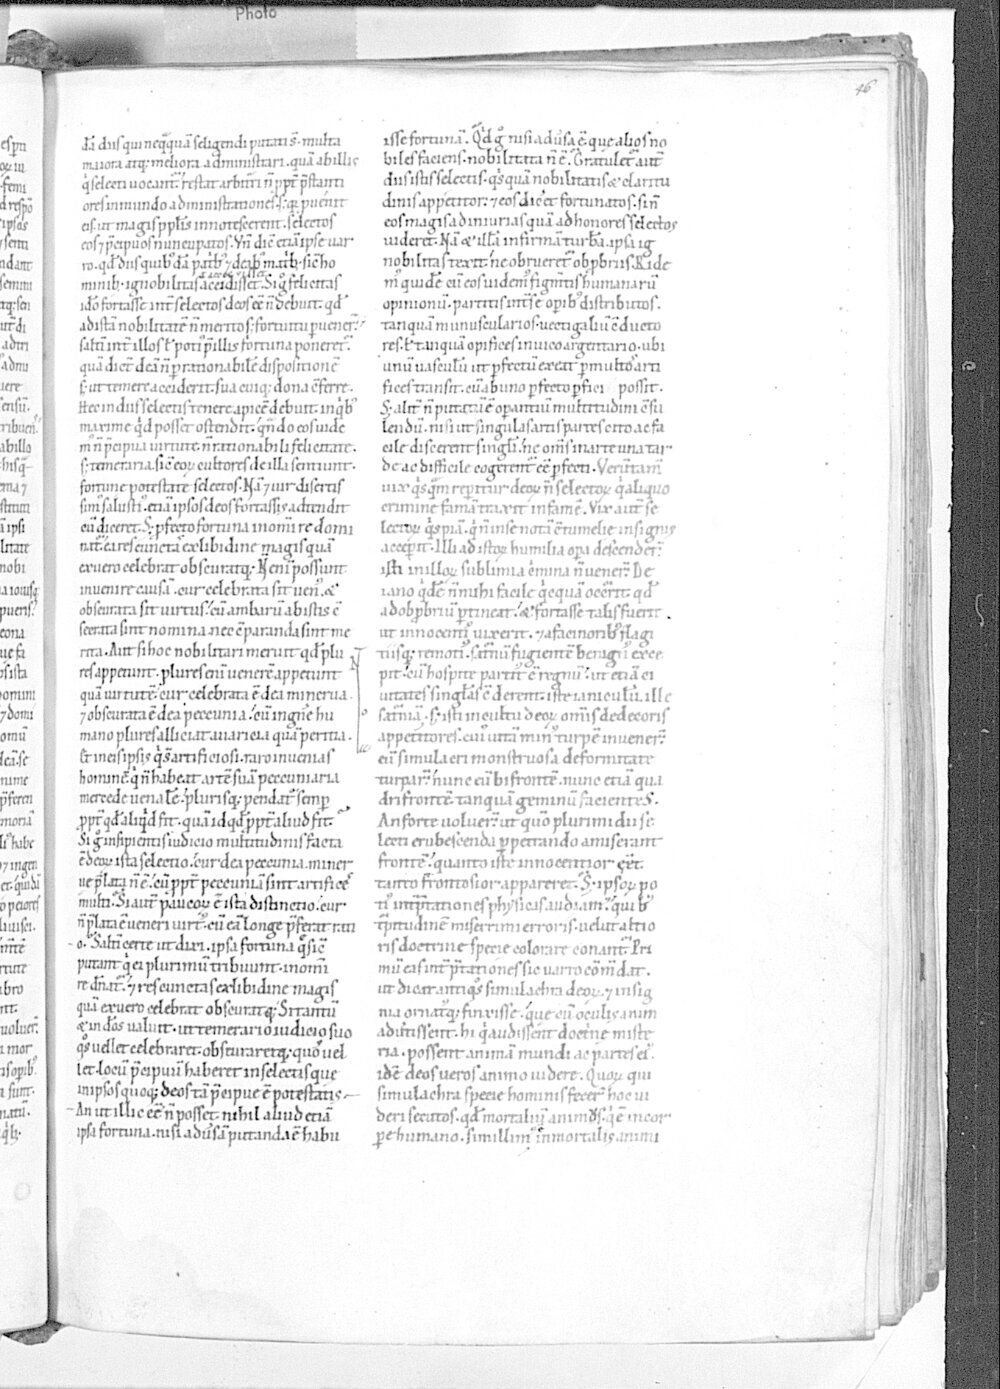 Photo
46
dā diis qui neq̄quā seligendi putati s̄. multa
maiora atq; meliora administrari. quā ab illis
q̇ selecti uocant̄. restat arbitri n̄ ppt̄ p̄stanti
ores in mundo administrationes. s; q̄ puenit
eis. ut magis pplis innotescerent. selectos
eos ⁊ p̄cipuos nuncupatos. Vn̄ dic̄ etiā ipse var
ro. qd̄ diis quibꝰdā patribꝰ ⁊ deabꝰ matribꝰ. sic ho
minibꝰ. ignobilitas accidisset. Si g̊ felicitas
ido fortasse int̄ selectos deos eē n̄ debuit. qd̄
ad istā nobilitatē n̄ merito s; fortuitu puener̄.
saltū int̄ illos ł potiꝰ p̄ illis fortuna poneret̄.
quā dic̄t deā n̄ p̄ rationabilē dispositionē
s; ut temere acciderit. sua cuiq; dona c̄ferre.
Hęc in diis selectis tenere apicē debuit. in qꝰbꝰ
maxime qd̄ posset ostendit. qn̄do eos uide
mꝰ n̄ p̄cipua uirtute. n̄ rationabili felicitate.
s; temeraria. sic̄ eoꝝ cultores de illa sentiunt.
fortune potestate selectos. Nā ⁊ uir disertis
simꝰ salustiꝰ. etiā ipsos deos fortassis adtendit
cū diceret. S; pfecto fortuna in om̄i re domi
nat̄. ea res cunctas ex libidine magis quā
ex uero celebrat obscuratq;. N̄ eni possunt
inuenire causā. cur celebrata sit uenꝰ. &
obscurata sit uirtus. cū ambarū ab istis c̄
secrata sint nomina. nec c̄paranda sint me
rita. Aut si hoc nobilitari meruit qd̄ plu
res appetunt. plures eni uenerē appetunt
quā uirtutē. cur celebrata ē dea minerua.
⁊ obscurata ē dea peccunia. cū in gn̄e hu
mano plures alliciat auaricia quā peritia.
Et in eis ipsis qͥ s̄ artificiosi. raro inuenias
hominē q̇ n̄ habeat artē suā peccuniaria
mercede uenalē. plurisq; pendat̄ semp
ppt̄ qd̄ aliqd̄ fit. quā id qd̄ ppt̄ aliud fit.
Si g̊ insipientis iudicio multitudinis facta
ē deoꝝ ista selectio. cur dea peccunia. miner
ue p̄lata n̄ ē. cū ppt̄ peccuniā sint artifices
multi. Si aut̄ paucoꝝ ē ista distinctio. cur
n̄ p̄lata ē ueneri uirtꝰ. cū eā longe p̄ferat rati
o. Saltē certe ut dixi. ipsa fortuna q̄ sic̄
putant q̇ ei plurimū tribuunt. in om̄i
re dn̄at̄. ⁊ res cunctas ex libidine magis
quā ex uero celebrat obscuratq;. Si tantū
& in deos ualuit. ut temerario iudicio suo
qͦs uellet celebraret. obscuraretq; quos uel
let. locū p̄cipuū haberet in selectis que
in ipsos quoq; deos tā p̄cipue ē potestatis.
An ut illic eē n̄ posset. nihil aliud etiā
ipsa fortuna. nisi aduersā putanda ē habu
isse fortunā. Qd̄ g̊ nisi aduersa ē. que alios no
biles faciens. nobilitata n̄ ē. Gratulet̄ aut̄
diis istis selectis. qͥsquā nobilitatis & claritu
dinis appetitor. ⁊ eos dic̄et fortunatos. si n̄
eos magis ad iniurias quā ad honores selectos
uideret. Nā & illā infirmā turbā. ipsa ig
nobilitas texit. ne obrueret̄ obpbriis. Ride
mꝰ quidē cū eos uidemꝰ figmtis humanarū
opinionū. partitis int̄ se opibꝰ distributos.
tanquā munuscularios. uectigaliū c̄ducto
res. ł tanquā opifices in uico argentario. ubi
unū uasculū. ut pfectū exeat p multos arti
fices transit. cū ab uno pfecto pfici possit.
S; alit̄ n̄ putatū ē operantiū multitudini c̄su
lendū. nisi ut singulas artis partes cito ac fa
cile discerent singli. ne om̄s in arte una tar
de ac difficile cogerent̄ eē pfecti. Verūtam̄
uix qͥsqm̄ repitur deoꝝ n̄ selectoꝝ. q̇ aliquo
crimine famā traxit infamē. Vix aut̄ se
lectoꝝ qͥspiā. q̇ n̄ in se notā c̄tumelie insignis
accepit. Illi ad istoꝝ humilia opa descender̄.
isti in illoꝝ sublimia c̄mina n̄ uener̄. De
iano qdē n̄ mihi facile qͥcquā occr̄it. qd̄
ad obpbriū ptineat. & fortasse talis fuerit.
ut innocentiꝰ uixerit. ⁊ a facinoribꝰ flagi
tiisq; remotiꝰ. saturnū fugientē benignꝰ exce
pit. cū hospite partitꝰ ē regnū. ut etiā ci
uitates singlas c̄derent. iste ianiculū. ille
saturniā. S; isti in cultu deoꝝ om̄is dedecoris
appetitores. cui uitā minꝰ turpē inuener̄.
cū simulacri monstruosa deformitate
turpar̄. nunc cū bifrontē. nunc etiā qua
drifrontē. tanquā geminū facientes.
An forte uoluer̄. ut quō plurimi dii se
lecti erubescenda ppetrando amiserant
frontē. quanto iste innocentior eēt.
tanto frontosior appareret. S; ipsoꝝ po
tiꝰ int̄ptationes physicas audiamꝰ. quibꝰ
turpitudinē miserrimi erroris. uelut altio
ris doctrine specie colorare conant̄. Pri
mū eas int̄p̄tationes sic uarro cōm̄dat.
ut dicat antiqͦs simulachra deoꝝ. ⁊ insig
nia ornatꝰq; finxisse. que cū oculis anim
aduertissent. hi q̇ adissent doctrine miste
ria. possent animā mundi ac partes eiꝰ.
id ē deos ueros animo uidere. Quoꝝ qui
simulachra specie hominis fecer̄. hoc ui
deri secutos. qd̄ mortaliū animꝰ. q̇ ē in cor
pe humano. simillimꝰ inmortalis animi